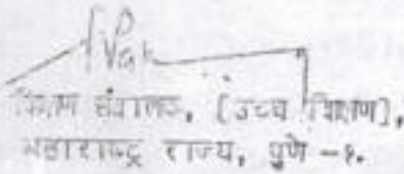 शिक्षण संचालक, (उच्च शिक्षण),
महाराष्ट्र राज्य, पुणे -१.